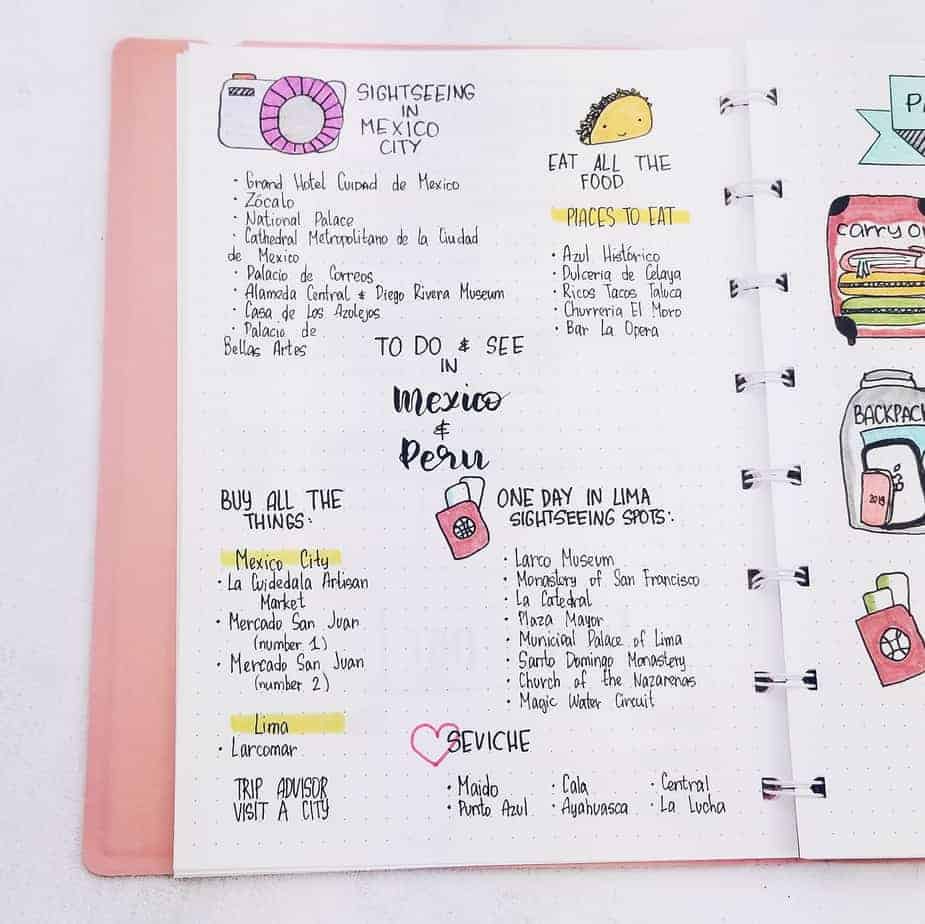 SIGHTSEEING
IN
MEXICO
CITY
· Grand Hotel Cuidad de Mexico
· Zócalo
· National Palace
· Cathedral Metropolitano de la Ciudad
de Mexico
· Palacio de Correos
· Alameda Central & Diego Rivera Museum
· Casa de Los Azolejos
· Palacio de
Bellas Artes
EAT ALL THE
FOOD
PLACES TO EAT
· Azul Histórico
· Dulceria de Celaya
· Ricos Tacos Taluca
· Churreria El Moro
· Bar La Opera
TO DO & SEE
IN
Mexico
&
Peru
BUY ALL THE
THINGS:
Mexico City
· La Cuidedala Artisan
Market
· Mercado San Juan
(number 1)
· Mercado San Juan
(number 2)
Lima
· Larcomar
TRIP ADVISOR
VISIT A CITY
ONE DAY IN LIMA
SIGHTSEEING SPOTS:
· Larco Museum
· Monastory of San Francisco
· La Catedral
· Plaza Mayor
· Municipal Palace of Lima
· Santo Domingo Monastery
· Church of the Nazarenas
· Magic Water Circuit
SEVICHE
· Maido · Cala · Central
· Punto Azul · Ayahuasca · La Lucha
CARRY O
BACKPACK
2019